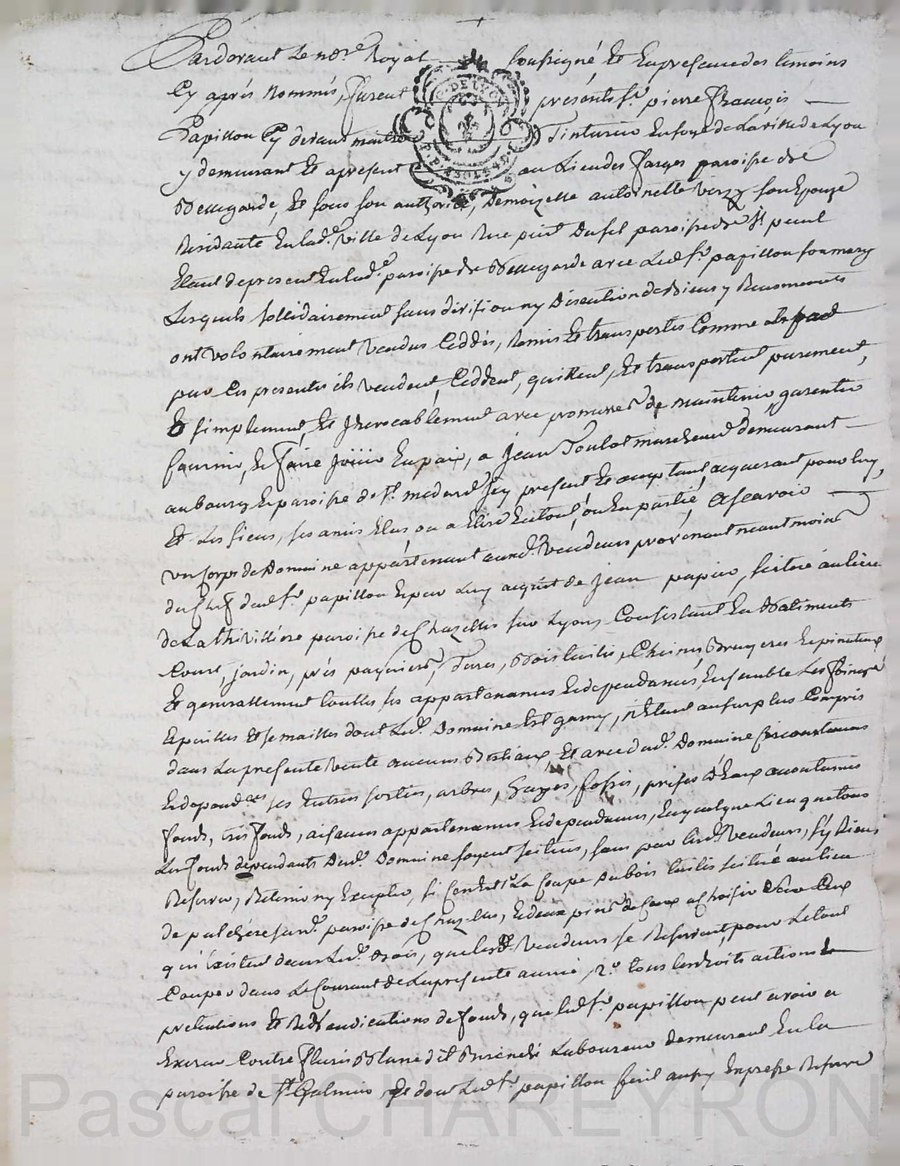 Pardevant Le no.re Royal soussigné Et En presence des temoins
Cy après nommés, furent présents s.r pierre françois
Papillon Cy devant maitre Tinturier En soye de La ville de Lyon
y demeurant Et apresent au Lieu des farges paroisse de
Bellegarde, Et sous son authorité, Demoizelle antoinette son Epouze
Residante En lad.e ville de Lyon Rue paroisse de S.t paul
Etant de present En lad.e paroisse de Bellegarde avec Led.t s.r papillon son mary
Lesquels sollidairement sans division ny Discution de Biens y Renonceants
ont volontairement vendus Ceddés, Remis Et transportés Comme
par Ces presentes ils vendent, Ceddent, quittent, Et transportent purement,
Et simplement, Et Jrrevocablement avec promesse de maintenir, garentir
fournir, Et faire joüir En paix, a jean Toulot marchand demeurant
au bourg Et paroisse de S.t medard Jcy present Et acceptant acquerant pour luy,
Et Les siens, ses amis Elus, ou a Elire En tout, ou En partie, ascavoir
un Corps de Domaine appartenant auxd. vendeurs provenant neantmoins
du Chef dud. s.r papillon Et par Luy acquis de jean papier, scitué au lieu
de La thivillière paroisse de Chazelles sur Lyon, Consistant En Batiments
Court, jardin, près paquiers, Terres, Bois taillis, Bruyeres
Et generallement touttes ses appartenances Et dependances, Ensemble Les foins
Et pailles Et semailles dont Led. Domaine Est garny, n'Etant au surplus Compris
dans La presente vente aucuns Bestiaux, Et avec dud. Domaine Circonstances
Et dependces ses Entrées sorties, arbres, hayes, fossés, prises d'Eaux accoutumés
fonds, tres fonds, aisances appartenances Et dependances, En quelque Lieu que tous
Les fonds dépendants Dud. Domaine soyent scitués, sans par lesd. vendeurs, s'y Rien
Reserver, Retenir ny Excepter, si Ce n'est 1.o La Coupe du bois taillis scitué au lieu
de paroisse de Chazelles, Et deux pins de Ceux a Choisir Entre Ceux
qui Existent dans Led. Bois, que lesd. vendeurs se Reservent, pour Le tout
Couper dans Le Courant de La presente année, 2.o tous les droits actions Et
pretentions Et Revandications de fonds, que led. s.r papillon peut avoir a
Exercer Contre Laboureur demeurant En la
paroisse de S.t Galmier Et dont Led. s.r papillon fait aussy Expresse Reserve
Pascal CHAREYRON